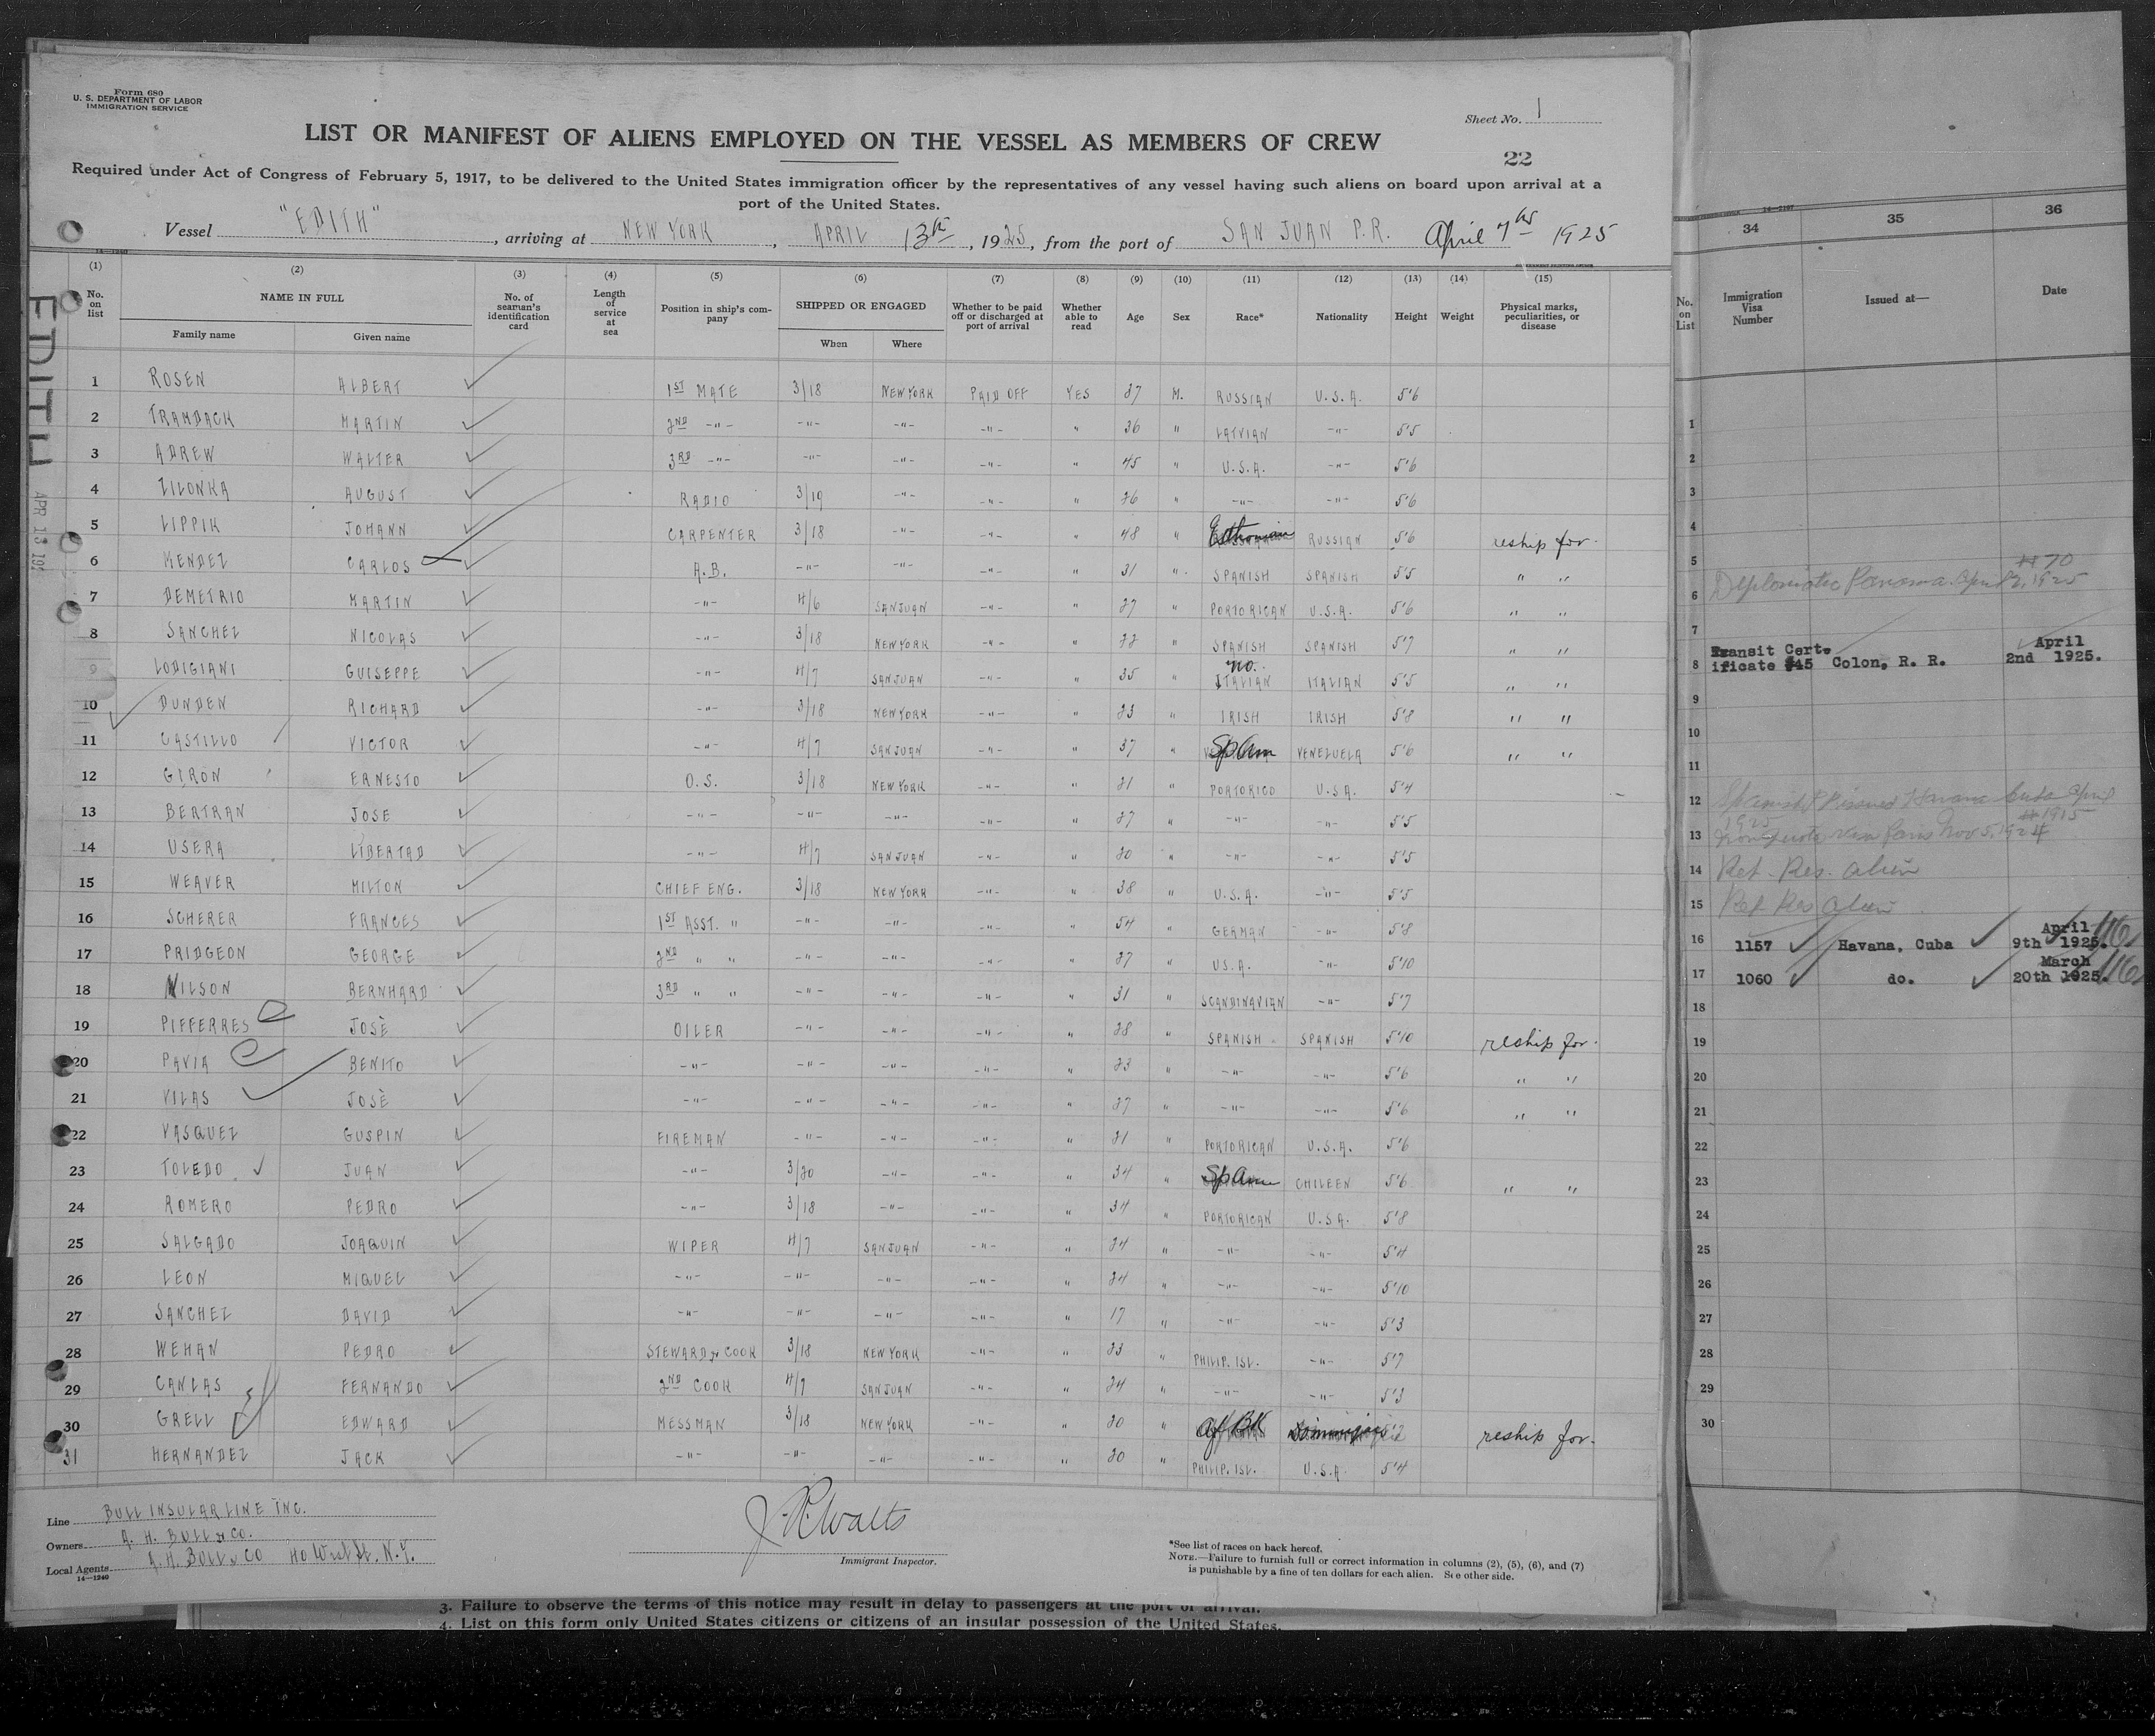 Form 680
U. S. DEPARTMENT OF LABOR
IMMIGRATION SERVICE
Sheet No. 1
LIST OR MANIFEST OF ALIENS EMPLOYED ON THE VESSEL AS MEMBERS OF CREW
22
Required under Act of Congress of February 5, 1917, to be delivered to the United States immigration officer by the representatives of any vessel having such aliens on board upon arrival at a
port of the United States.
Vessel "EDITH", arriving at NEW YORK, APRIL 13th, 1925, from the port of SAN JUAN P.R. April 7th 1925
14—1240
(1) (2) (3) (4) (5) (6) (7) (8) (9) (10) (11) (12) (13) (14) (15)
No. on list NAME IN FULL Family name Given name No. of seaman's identification card Length of service at sea Position in ship's company SHIPPED OR ENGAGED When Where Whether to be paid off or discharged at port of arrival Whether able to read Age Sex Race* Nationality Height Weight Physical marks, peculiarities, or disease
EDITH
APR 13 192
1 ROSEN ALBERT 1ST MATE 3/18 NEW YORK PAID OFF YES 27 M. RUSSIAN U.S.A. 5'6
2 TRAMDACK MARTIN 2ND -"- -"- -"- -"- " 36 " LATVIAN -"- 5'5
3 ADREW WALTER 3RD -"- -"- -"- -"- " 45 " U.S.A. -"- 5'6
4 ZILONKA AUGUST RADIO 3/19 -"- -"- " 26 " -"- -"- 5'6
5 LIPPIK JOHANN CARPENTER 3/18 -"- -"- " 48 " Esthonian RUSSIAN 5'6 reship for.
6 MENDEZ CARLOS A.B. -"- -"- -"- " 31 " SPANISH SPANISH 5'5 " "
7 DEMETRIO MARTIN -"- 4/6 SANJUAN -"- " 27 " PORTORICAN U.S.A. 5'6 " "
8 SANCHEZ NICOLAS -"- 3/18 NEW YORK -"- " 22 " SPANISH SPANISH 5'7 " "
9 LODIGIANI GUISEPPE -"- 4/7 SANJUAN -"- " 35 " no. ITALIAN ITALIAN 5'5 " "
10 DUNDEN RICHARD -"- 3/18 NEW YORK -"- " 23 " IRISH IRISH 5'8 " "
11 CASTILLO VICTOR -"- 4/7 SANJUAN -"- " 37 " Sp Am VENEZUELA 5'6 " "
12 GIRON ERNESTO O.S. 3/18 NEW YORK -"- " 21 " PORTORICO U.S.A. 5'4
13 BERTRAN JOSE -"- -"- -"- -"- " 27 " -"- -"- 5'5
14 USERA LIBERTAD -"- 4/7 SANJUAN -"- " 20 " -"- -"- 5'5
15 WEAVER MILTON CHIEF ENG. 3/18 NEW YORK -"- " 38 " U.S.A. -"- 5'5
16 SCHERER FRANCES 1ST ASST. " -"- -"- -"- " 54 " GERMAN -"- 5'8
17 PRIDGEON GEORGE 2ND " " -"- -"- -"- " 27 " U.S.A. -"- 5'10
18 NILSON BERNHARD 3RD " " -"- -"- -"- " 31 " SCANDINAVIAN -"- 5'7
19 PIFFERRES JOSÈ OILER -"- -"- -"- " 28 " SPANISH SPANISH 5'10 reship for.
20 PAVIA BENITO -"- -"- -"- -"- " 23 " -"- -"- 5'6 " "
21 VILAS JOSÈ -"- -"- -"- -"- " 27 " -"- -"- 5'6 " "
22 VASQUEZ GUSPIN FIREMAN -"- -"- -"- " 21 " PORTORICAN U.S.A. 5'6
23 TOLEDO JUAN -"- 3/20 -"- -"- " 34 " Sp Am CHILEEN 5'6 " "
24 ROMERO PEDRO -"- 3/18 -"- -"- " 34 " PORTORICAN U.S.A. 5'8
25 SALGADO JOAQUIN WIPER 4/7 SANJUAN -"- " 24 " -"- -"- 5'4
26 LEON MIQUEL -"- -"- -"- -"- " 24 " -"- -"- 5'10
27 SANCHEZ DAVID -"- -"- -"- -"- " 17 " -"- -"- 5'3
28 WEHAN PEDRO STEWARD & COOK 3/18 NEW YORK -"- " 23 " PHILIP. ISL. -"- 5'7
29 CANLAS FERNANDO 2ND COOK 4/7 SANJUAN -"- " 24 " -"- -"- 5'3
30 GRELL EDWARD MESSMAN 3/18 NEW YORK -"- " 20 " Af Bk 5'2 reship for.
31 HERNANDEZ JACK -"- -"- -"- -"- " 20 " PHILIP. ISL. U.S.A. 5'4
Line BULL INSULAR LINE INC.
Owners A. H. BULL & CO.
Local Agents A. H. BULL & CO 40 West St. N.Y.
14—1240
Immigrant Inspector.
*See list of races on back hereof.
NOTE.—Failure to furnish full or correct information in columns (2), (5), (6), and (7)
is punishable by a fine of ten dollars for each alien. See other side.
3. Failure to observe the terms of this notice may result in delay to passengers at the port of arrival.
4. List on this form only United States citizens or citizens of an insular possession of the United States.
34 35 36
No. on List Immigration Visa Number Issued at— Date
1
2
3
4
5 #70
6 Diplomatic Panama Apr 2, 1925
7
8 Transit Certificate #45 Colon, R. R. April 2nd 1925.
9
10
11
12 Havana Cuba April
1925 #1915
13 Non quota visa Paris Nov 5, 1924
14 Ret. Res. Alien
15 Ret Res Alien
16 1157 Havana, Cuba April 9th 1925.
17 1060 do. March 20th 1925.
18
19
20
21
22
23
24
25
26
27
28
29
30